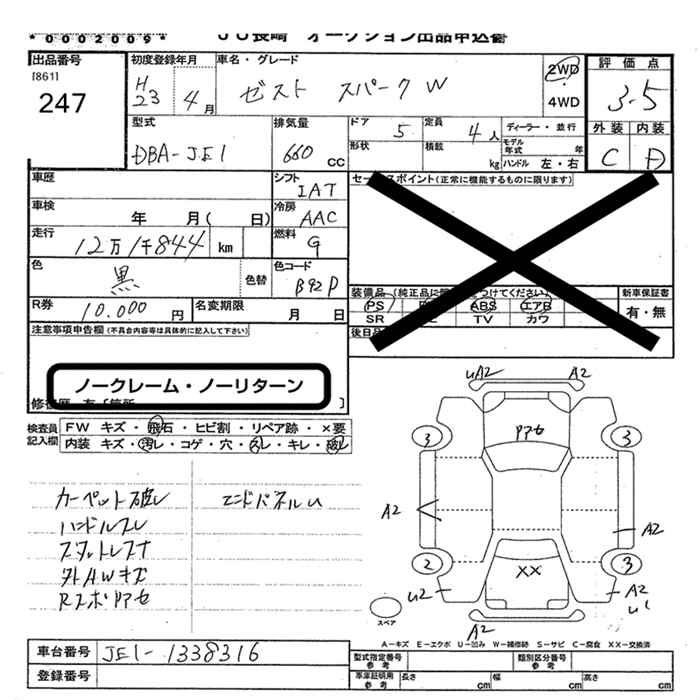 *0002009* JU長崎 オークション出品申込書
出品番号 初度登録年月 車名・グレード 2WD 評価点
[861] H23 4月 ゼスト スパーク W 4WD 3.5
247
型式 排気量 ドア 5 定員 4人 ディーラー・並行 外装 内装
DBA-JE1 660 CC 形状 積載 kg モデル年式 年 C D
ハンドル 左・右
車歴 シフト IAT セールスポイント(正常に機能するものに限ります)
車検 年 月( 日) 冷房 AAC
走行 12万1千844 km 燃料 G
色 黒 色替 色コード B92P
装備品(純正品に 新車保証書
PS ABS エアB 有・無
R券 10,000円 名変期限 月 日 SR TV カワ
注意事項申告欄(不具合内容等は具体的に記入して下さい) 後日品
ノークレーム・ノーリターン
検査員記入欄 FW キズ・飛石・ヒビ割・リペア跡・×要
内装 キズ・汚レ・コゲ・穴・スレ・キレ・破レ
カーペット破レ エンドパネルU
ハンドルスレ
外AWキズ
UA2 A2
アセ
3 3
A2 A2
2 3
XX
U2 A2
U1
スペア A2
A-キズ E-エクボ U-凹み W-補修跡 S-サビ C-腐食 XX-交換済
車台番号 JE1-1338316 型式指定番号 参考 類別区分番号 参考
登録番号 車庫証明用 参考 長さ cm 幅 cm 高さ cm